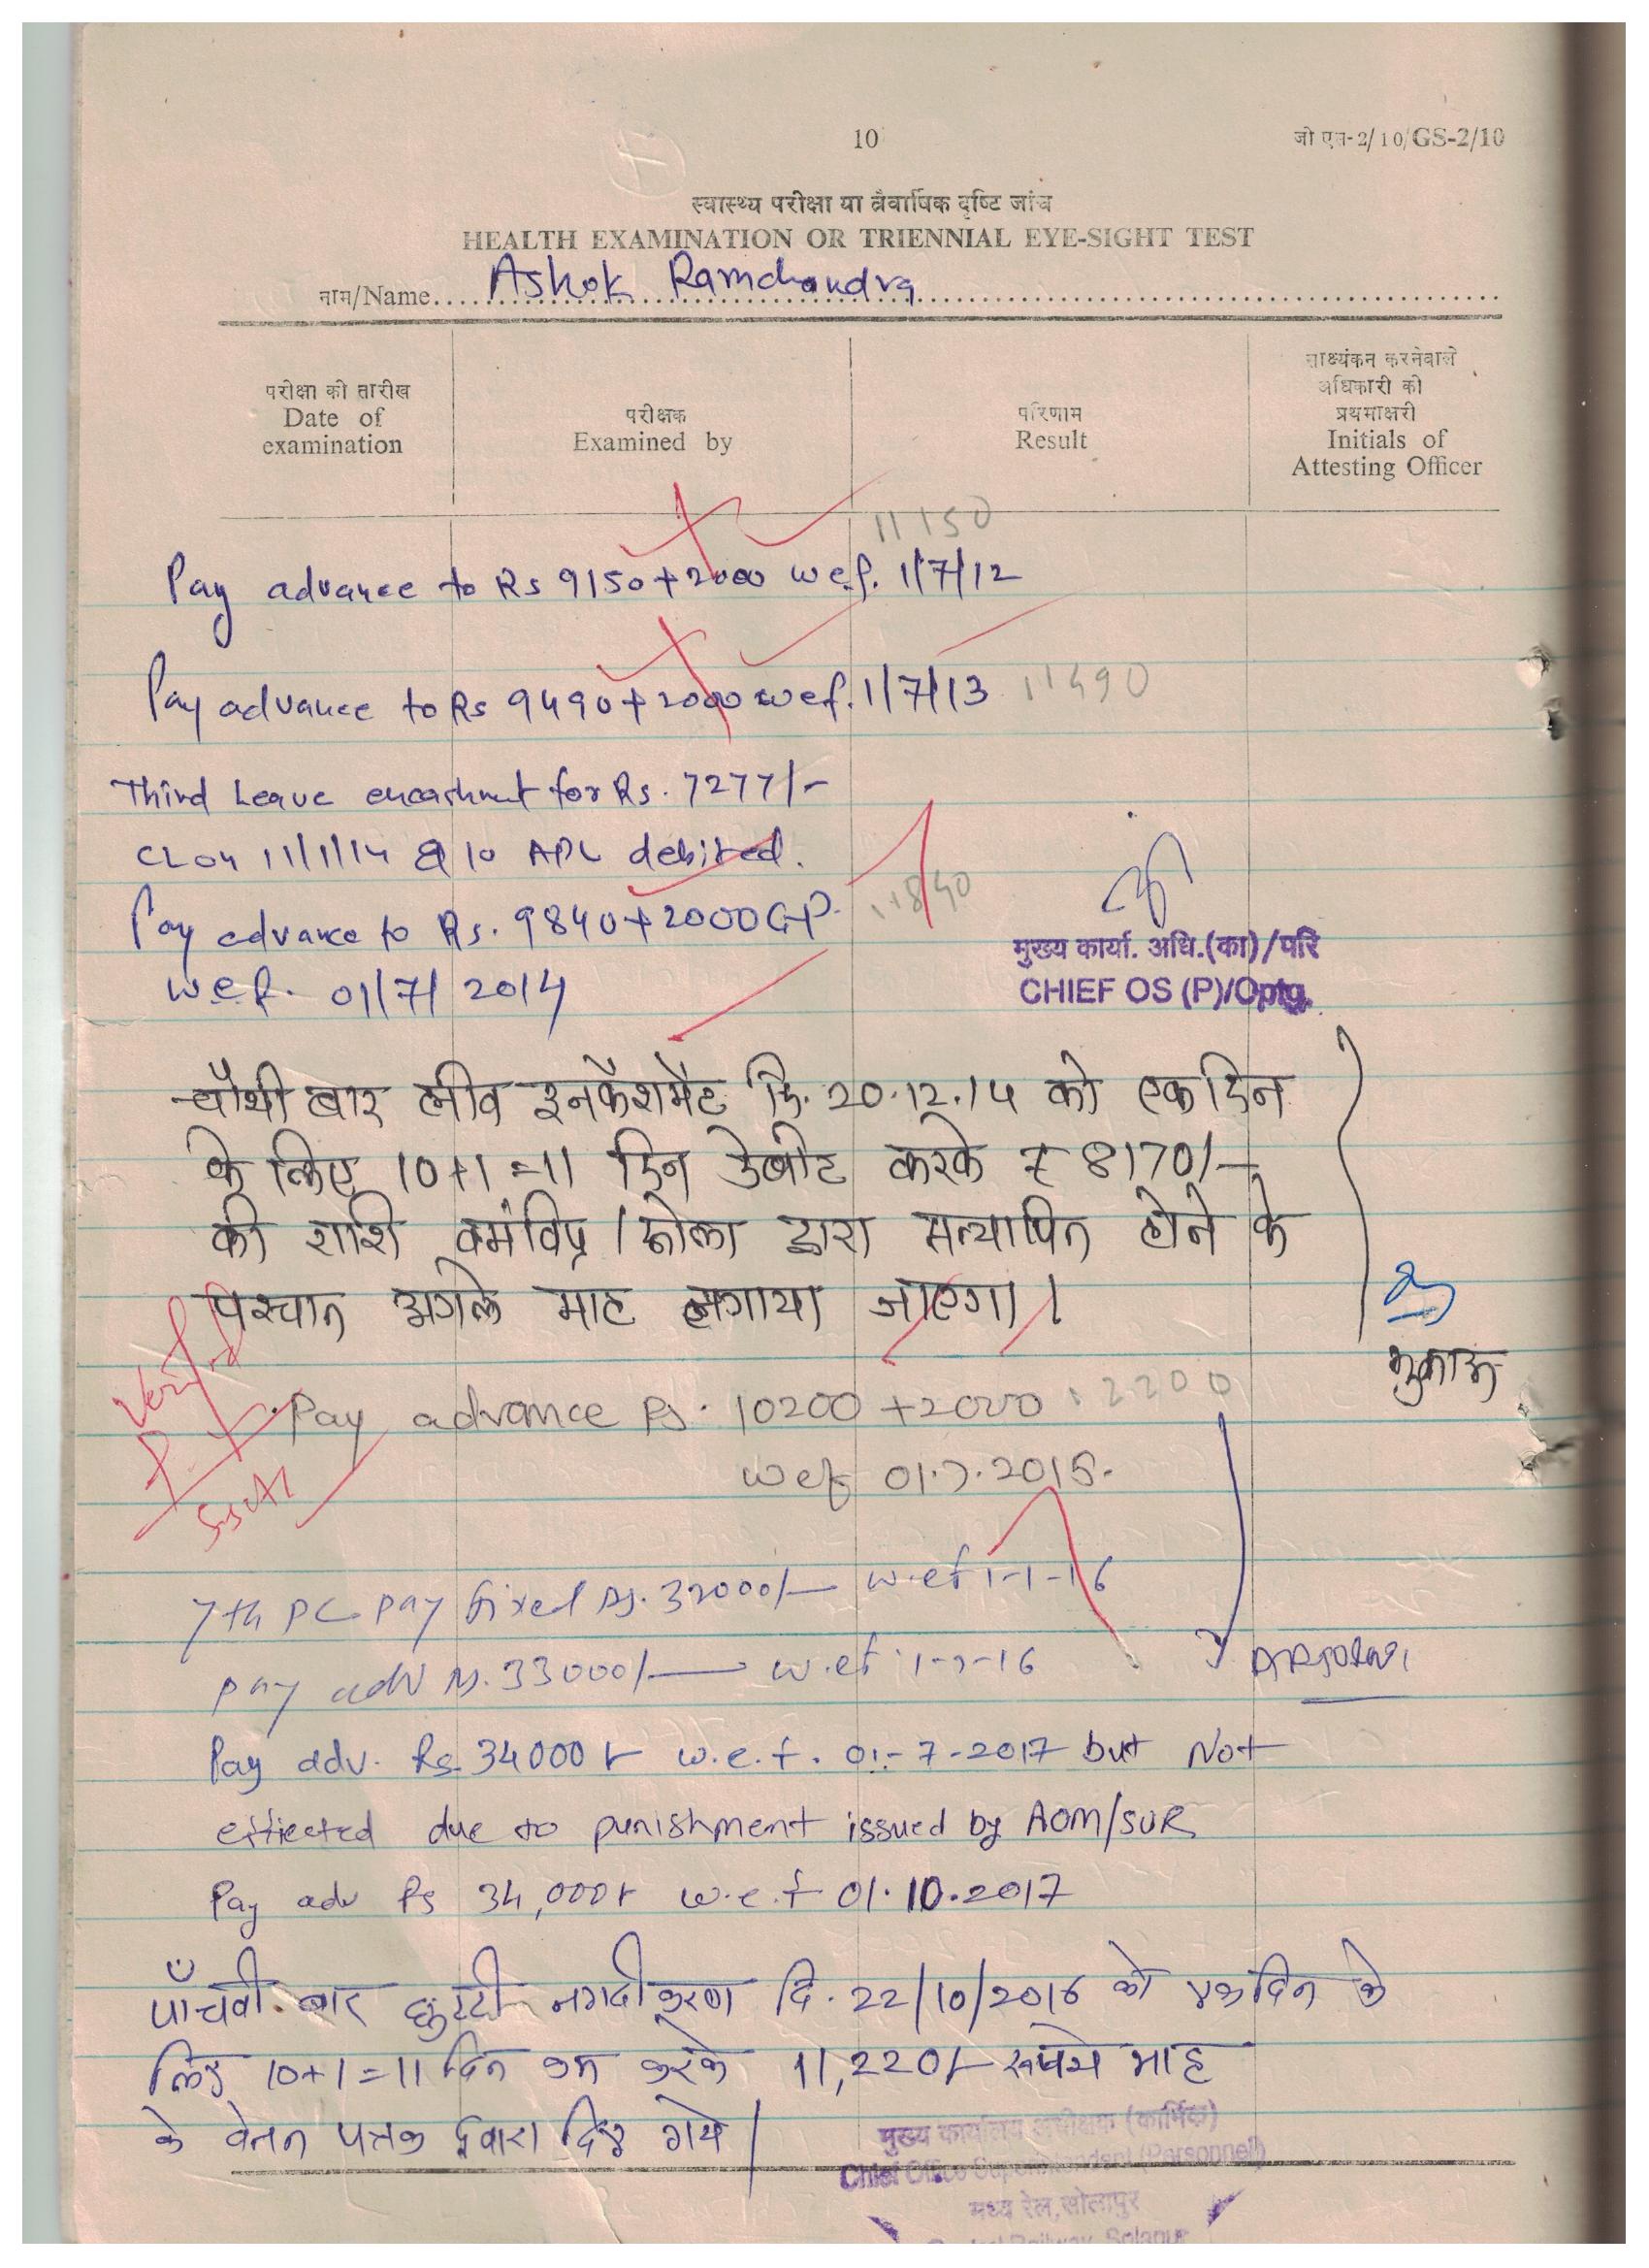 10
जी एस-2/10/GS-2/10
स्वास्थ्य परीक्षा या त्रैवार्षिक दृष्टि जांच
HEALTH EXAMINATION OR TRIENNIAL EYE-SIGHT TEST
नाम/Name.... Ashok Ramchandra
परीक्षा की तारीख
Date of
examination
परीक्षक
Examined by
परिणाम
Result
साक्ष्यंकन करनेवाले
अधिकारी की
प्रथमाक्षरी
Initials of
Attesting Officer
11150
Pay advance to Rs 9150+2000 wef. 1/7/12
Pay advance to Rs 9490+2000 wef. 1/7/13 11490
Third Leave encashment for Rs. 7277/-
CL on 11/1/14 & 10 APL debited.
Pay advance to Rs. 9840+2000GP. 11840
w.e.f. 01/7/2014
मुख्य कार्या. अधि.(का)/परि
CHIEF OS (P)/Optg.
चौथी बार लीव इनकैशमैंट दि. 20.12.14 को एक दिन
के लिए 10+1=11 दिन डेबीट करके ₹ 8170/-
की राशि वमंविप्र/सोला द्वारा सत्यापित होने के
पश्चात अगले माह लगाया जाएगा।
मुकाअ
Verified
Pay advance Rs. 10200+2000 12200
wef 01.7.2015.
7th PC pay fixed Rs. 32000/- w.ef 1-1-16
pay adv Rs. 33000/- w.ef 1-7-16
Pay adv. Rs. 34000/- w.e.f. 01-7-2017 but Not
effected due to punishment issued by AOM/SUR
Pay adv Rs 34,000/- w.e.f 01.10.2017
पाँचवी बार छुट्टी नगदीकरण दि. 22/10/2016 को एक दिन के
लिए 10+1=11 दिन कम करके 11,220/- रूपये माह
के वेतन पत्रक द्वारा दिए गये।
मुख्य कार्यालय अधीक्षक (कार्मिक)
Chief Office Superintendent (Personnel)
मध्य रेल, सोलापुर
Central Railway, Solapur